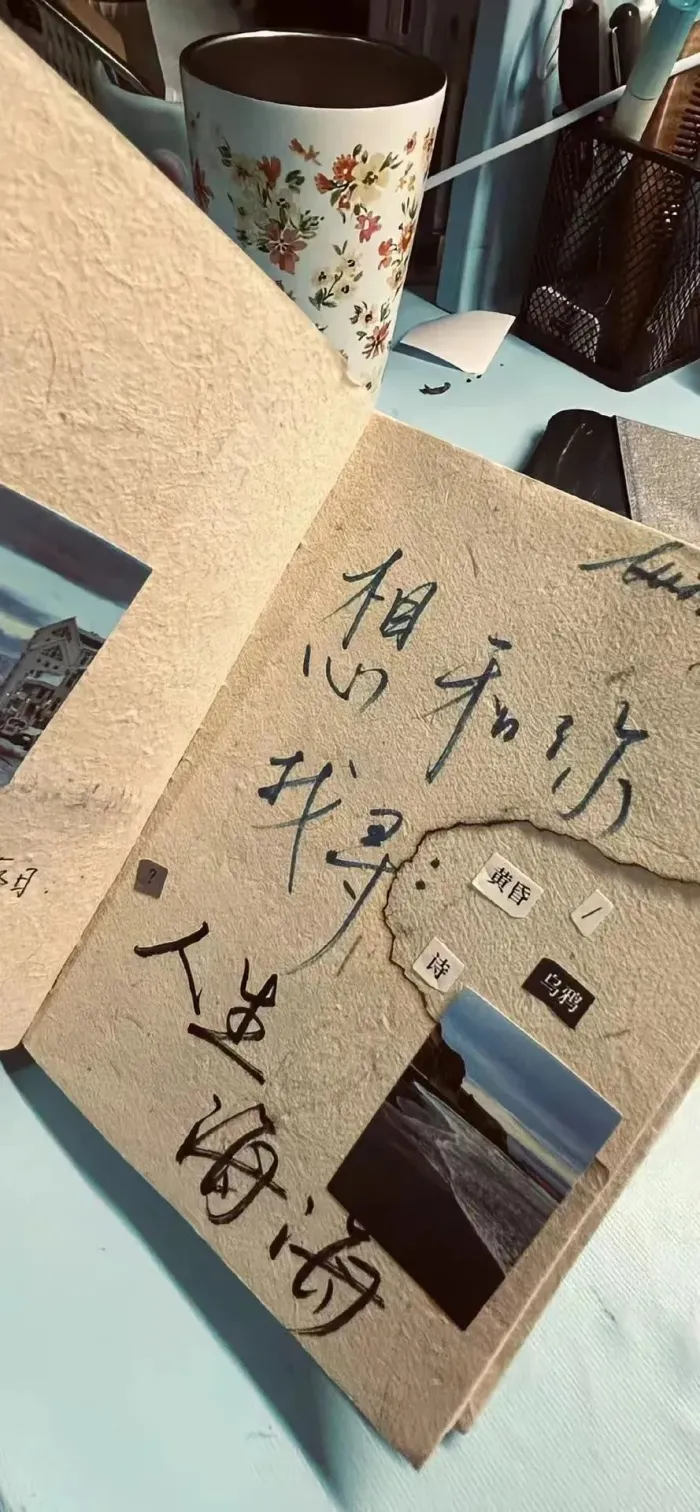 想和你
找寻:
黄昏 /
诗 乌鸦
?
人生
海海